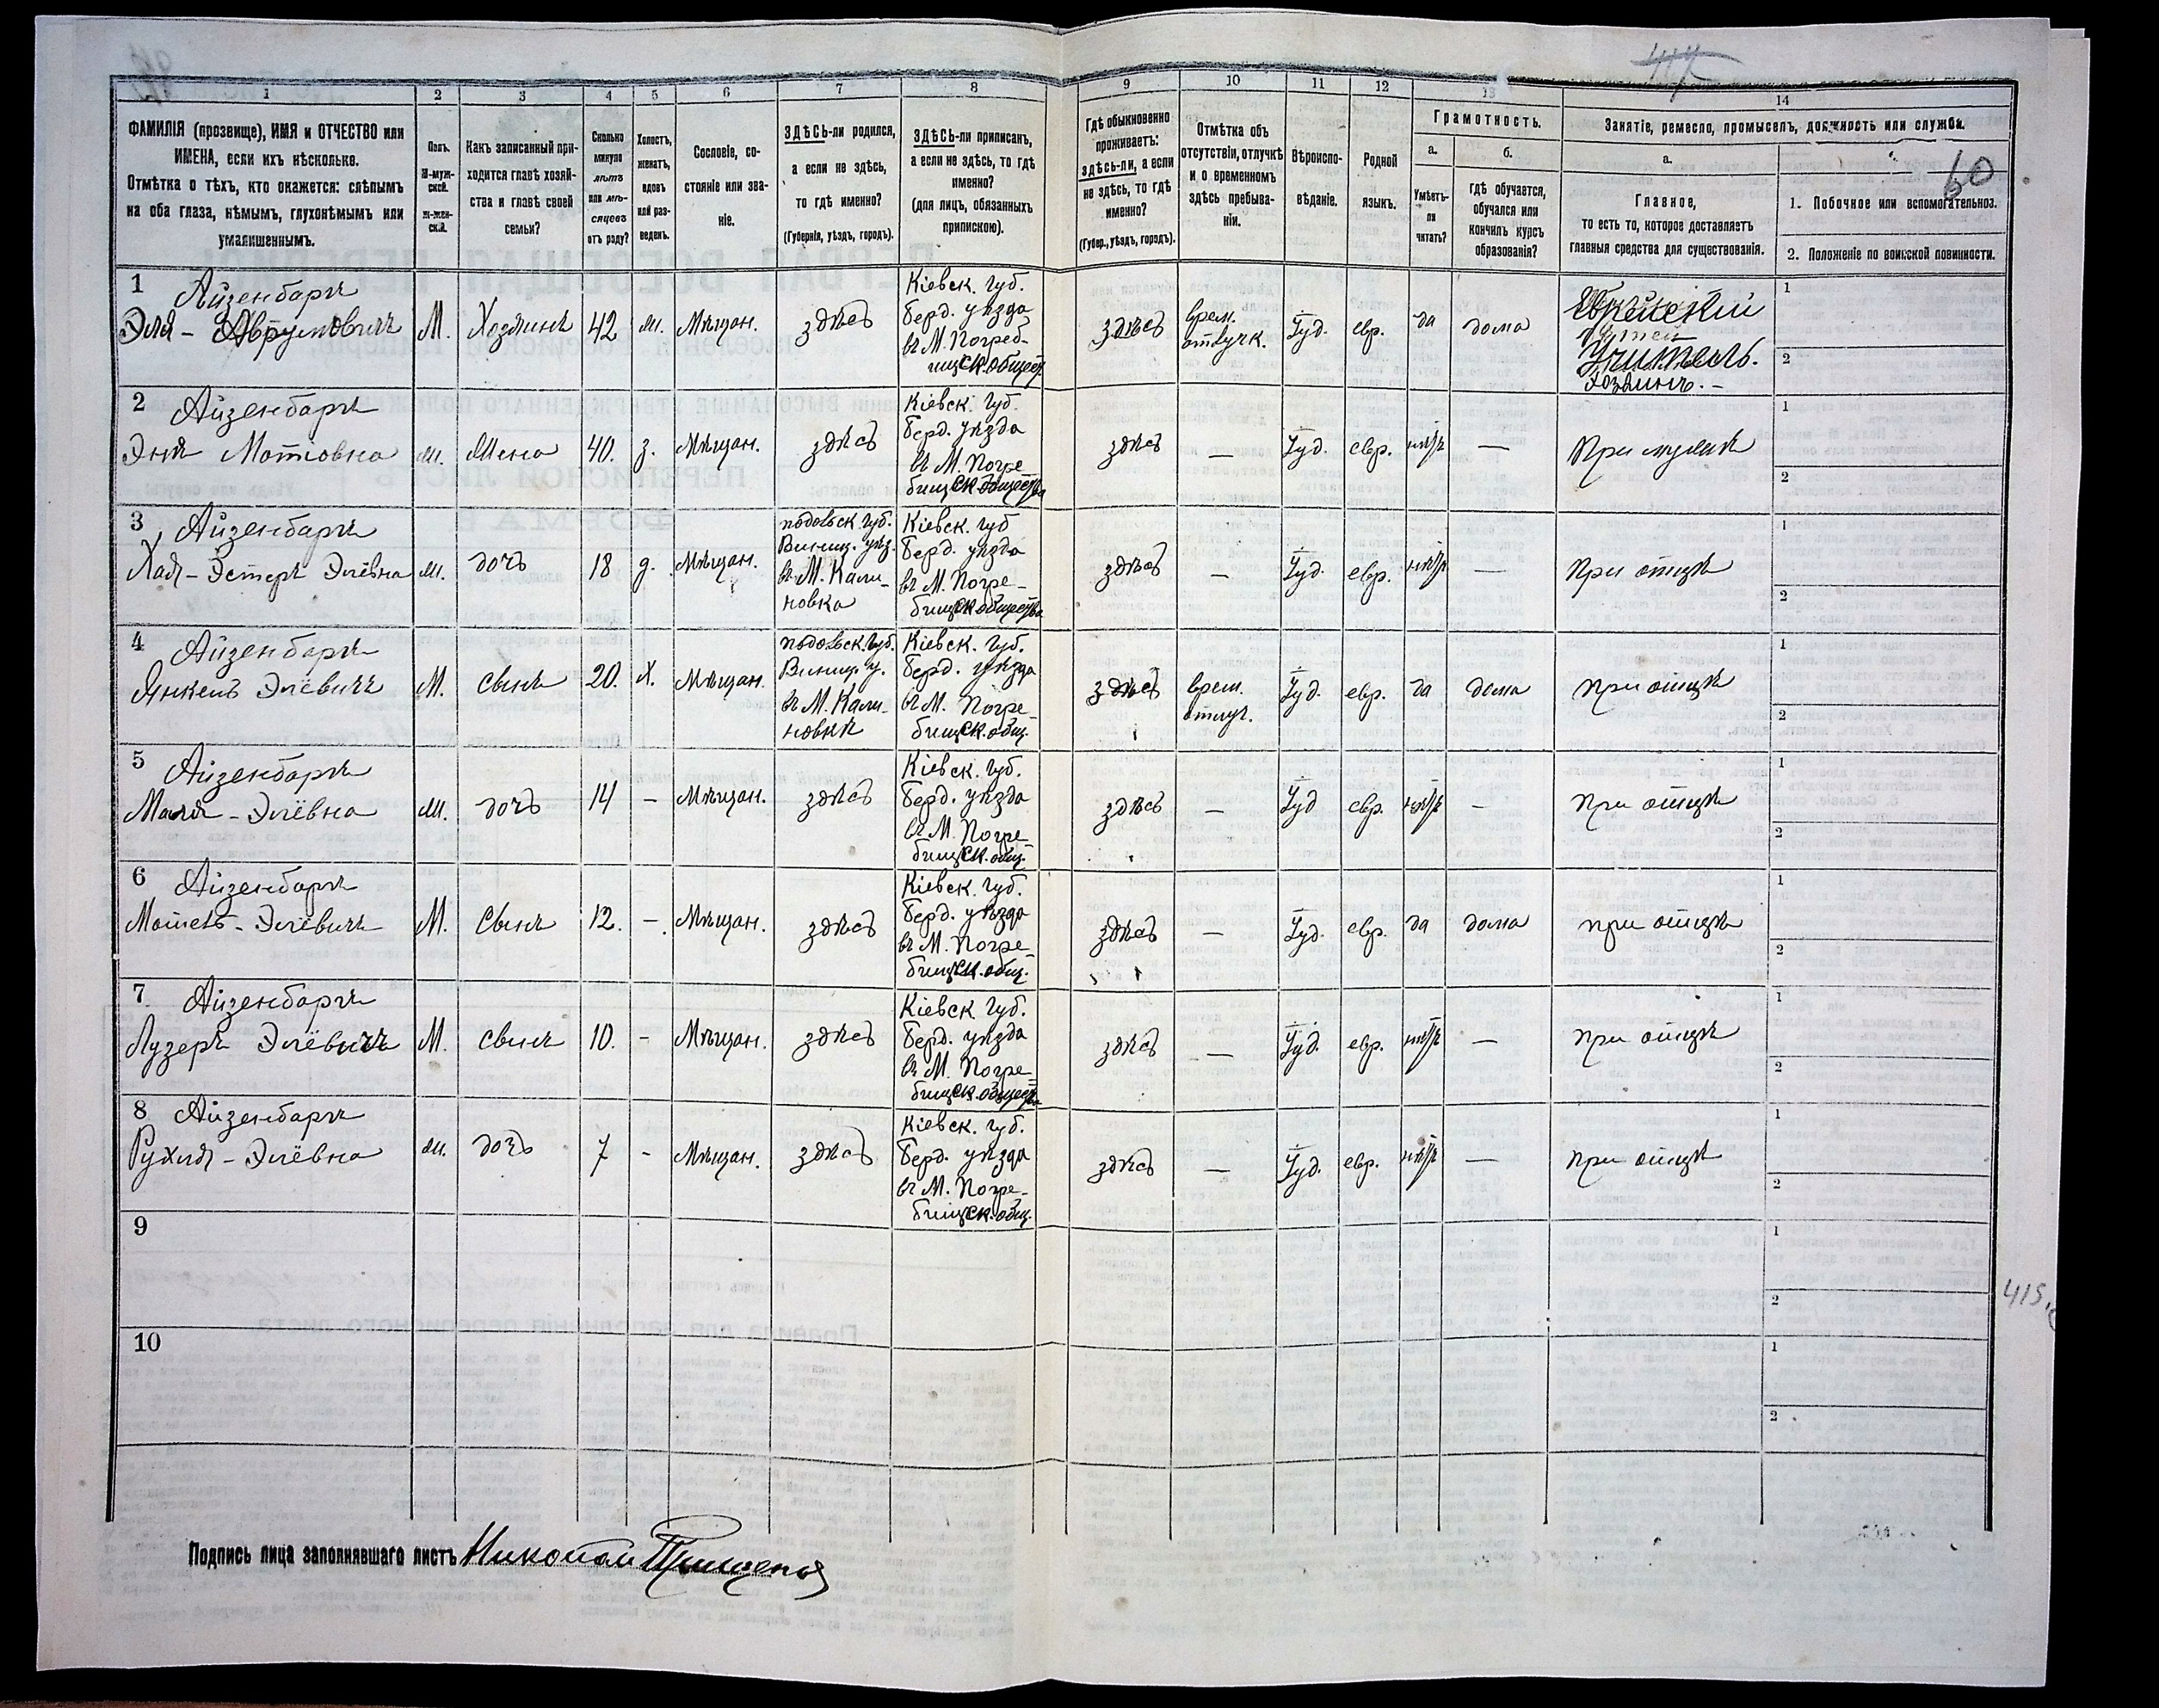 417
1 2 3 4 5 6 7 8 9 10 11 12 13 14
ФАМИЛІЯ (прозвище), ИМЯ и ОТЧЕСТВО или
ИМЕНА, если ихъ нѣсколько.
Отмѣтка о тѣхъ, кто окажется: слѣпымъ
на оба глаза, нѣмымъ, глухонѣмымъ или
умалишеннымъ.
Полъ.
М-муж-
ской.
ж-жен-
скій.
Какъ записанный при-
ходится главѣ хозяй-
ства и главѣ своей
семьи?
Сколько
минуло
лѣтъ
или мѣ-
сяцевъ
отъ роду?
Холостъ,
женатъ,
вдовъ
или раз-
веденъ.
Сословіе, со-
стояніе или зва-
ніе.
ЗДѢСЬ-ли родился,
а если не здѣсь,
то гдѣ именно?
(Губернія, уѣздъ, городъ).
ЗДѢСЬ-ли приписанъ,
а если не здѣсь, то гдѣ
именно?
(для лицъ, обязанныхъ
припискою).
Гдѣ обыкновенно
проживаетъ:
здѣсь-ли, а если
не здѣсь, то гдѣ
именно?
(Губер., уѣздъ, городъ).
Отмѣтка объ
отсутствіи, отлучкѣ
и о временномъ
здѣсь пребыва-
ніи.
Вѣроиспо-
вѣданіе.
Родной
языкъ.
Грамотность.
а.
Умѣетъ-
ли
читать?
б.
гдѣ обучается,
обучался или
кончилъ курсъ
образованія?
Занятіе, ремесло, промыселъ, должность или служба.
а.
Главное,
то есть то, которое доставляетъ
главныя средства для существованія.
60
1. Побочное или вспомогательное.
2. Положеніе по воинской повинности.
1 Айзенбаргъ
Эля - Аврумовичъ М. Хозяинъ 42 ж. Мѣщан. здѣсь
Кіевск. губ.
Берд. уѣзда
въ М. Погреб-
ищск. общест.
здѣсь
врем.
отлучк.
Іуд. евр. да дома
Еврейскій
Учитель.
Хозяинъ. -
1
2
2 Айзенбаргъ
Эня Мотiовна ж. Жена 40. з. Мѣщан. здѣсь
Кіевск. губ.
Берд. уѣзда
въ М. Погре
бищск. общества
здѣсь — Іуд. евр. нѣтъ — При мужѣ
1
2
3 Айзенбаргъ
Хая - Эстеръ Элёвна ж. дочь 18 д. Мѣщан.
подольск. губ.
Виниц. уѣз.
въ М. Кали-
новка
Кіевск. губ
Берд. уѣзда
въ М. Погре-
бищск. общества
здѣсь — Іуд. евр. нѣтъ — При отцѣ
1
2
4 Айзенбаргъ
Янкель Элёвичъ М. Сынъ 20. х. Мѣщан.
подольск. губ.
Виниц. у.
въ М. Кали-
новкѣ
Кіевск. губ.
Берд. уѣзда
въ М. Погре-
бищск. общ.
здѣсь
врем.
отлуч.
Іуд. евр. да дома при отцѣ
1
2
5 Айзенбаргъ
Маля - Элёвна ж. дочь 14 - Мѣщан. здѣсь
Кіевск. губ.
Берд. уѣзда
въ М. Погре-
бищск. общ.
здѣсь — Іуд евр. нѣтъ - при отцѣ
1
2
6 Айзенбаргъ
Мошеь - Элёвичъ М. Сынъ 12. - Мѣщан. здѣсь
Кіевск. губ.
Берд. уѣзда
въ М. Погре-
бищск. общ.
здѣсь — Іуд. евр. да дома при отцѣ
1
2
7 Айзенбаргъ
Лузеръ Элёвичъ М. Сынъ 10. - Мѣщан. здѣсь
Кіевск. губ.
Берд. уѣзда
въ М. Погре-
бищск. общества
здѣсь — Іуд. евр. нѣтъ — при отцѣ
1
2
8 Айзенбаргъ
Рухля - Элёвна ж. дочь 7 - Мѣщан. здѣсь
Кіевск. губ.
Берд. уѣзда
въ М. Погре-
бищск. общ.
здѣсь — Іуд. евр. нѣтъ — при отцѣ
1
2
9
1
2
415
10
1
2
Подпись лица заполнявшаго листъ Николай